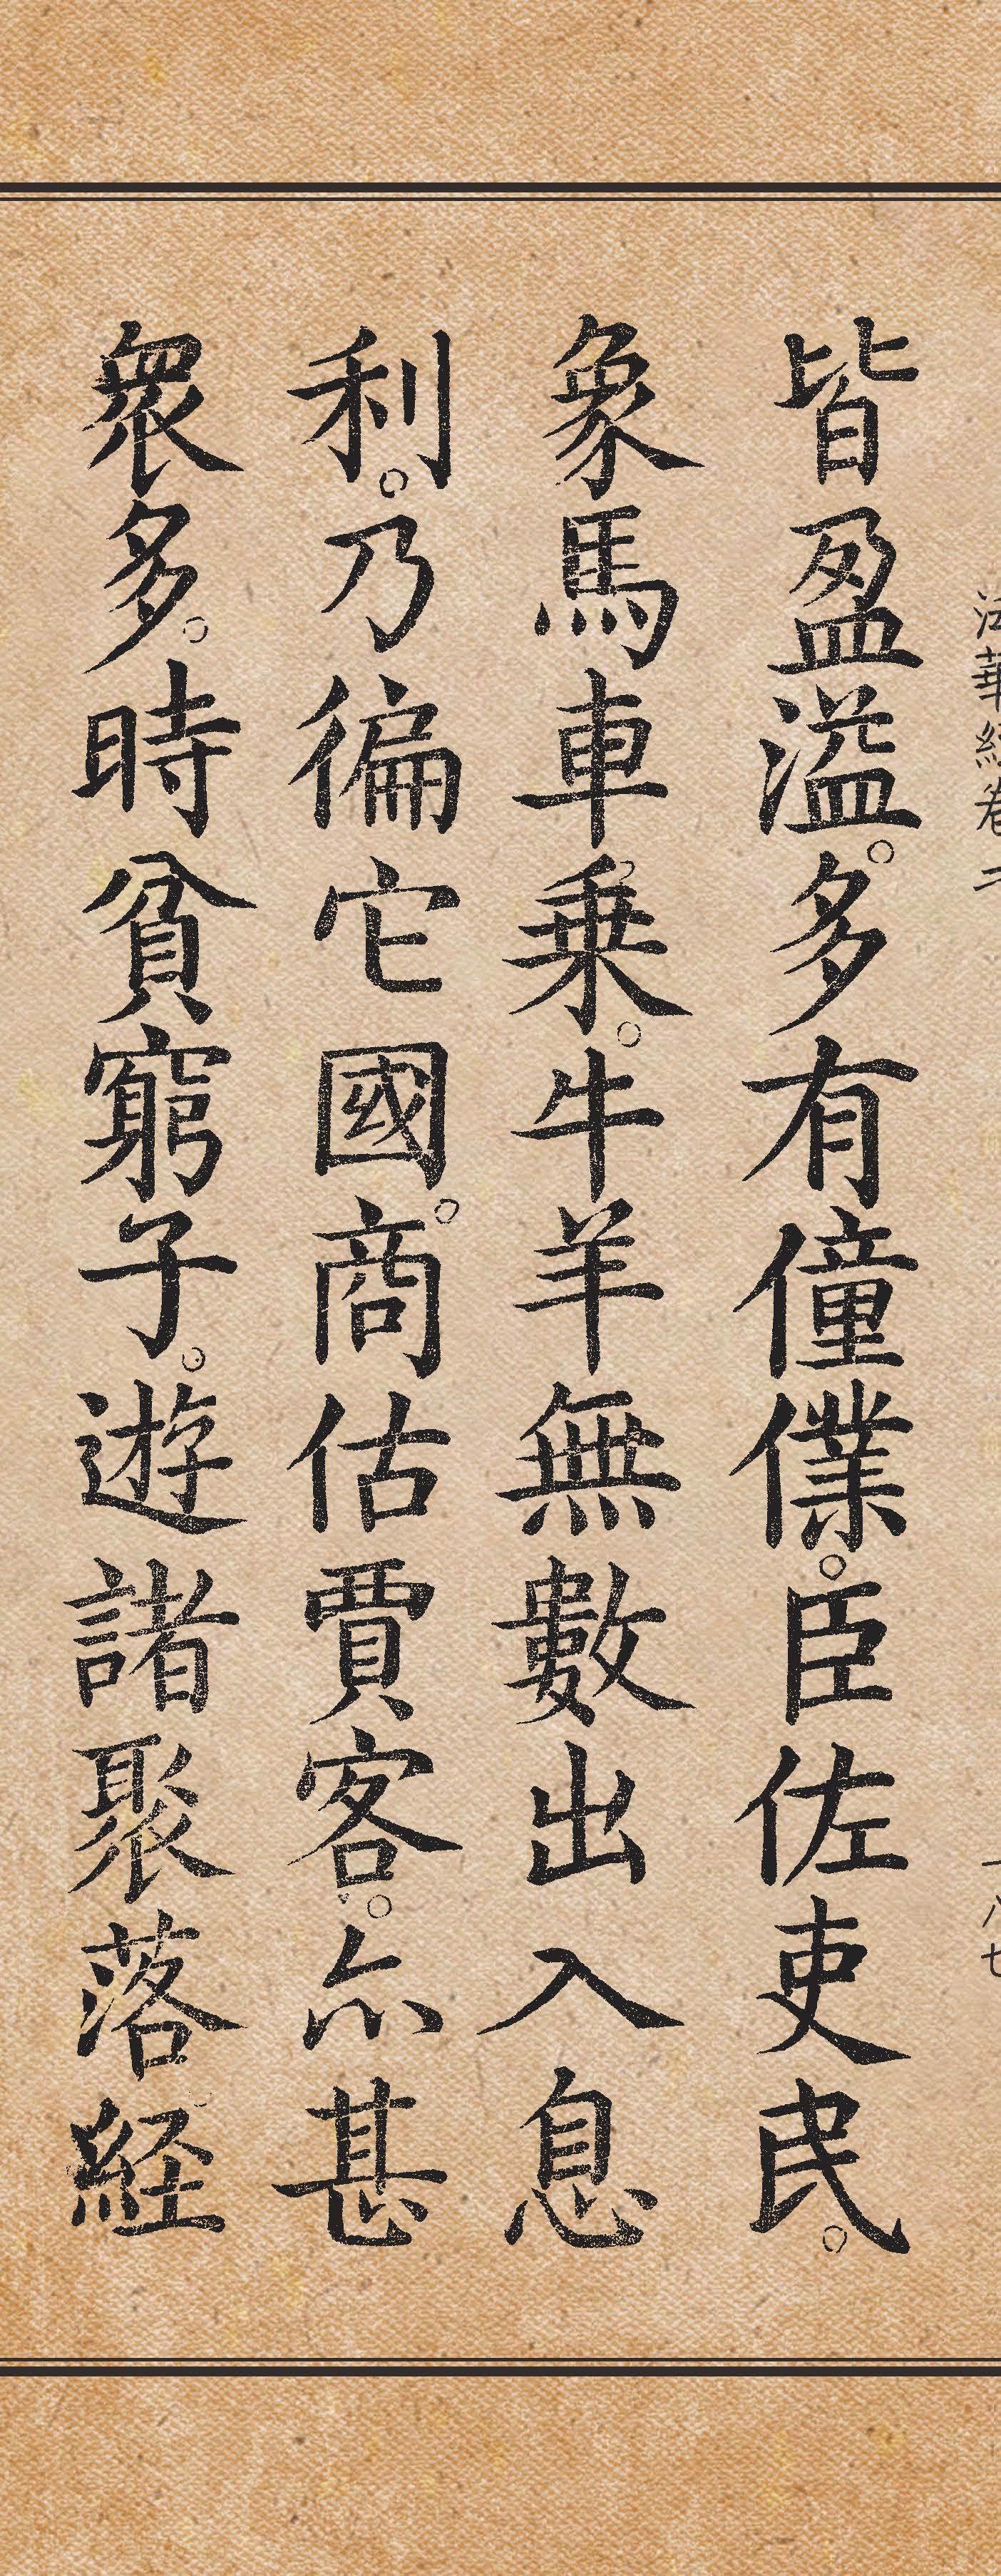 法華經卷二
一八七
皆盈溢。多有僮僕。臣佐吏民。
象馬車乗。牛羊無數出入息
利。乃徧它國。商估賈客。亦甚
衆多。時貧窮子。遊諸聚落経